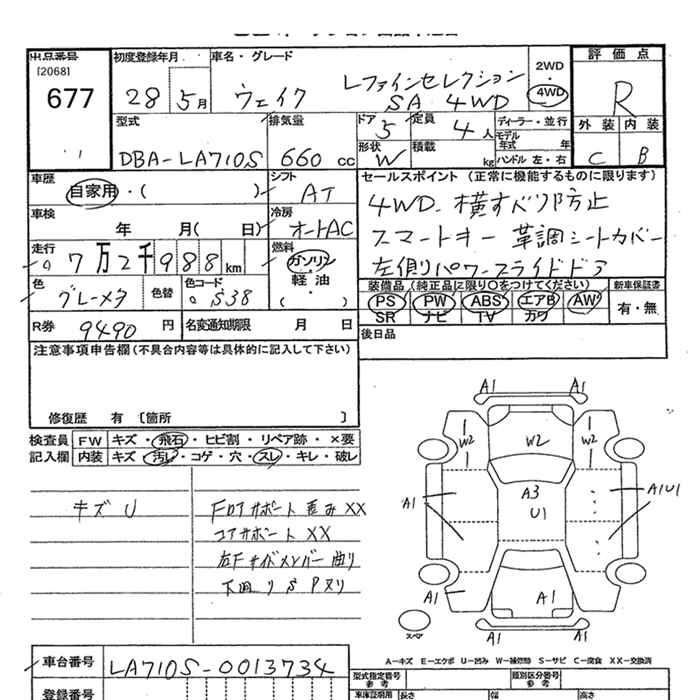 出品番号
[2068]
677
初度登録年月
28 5月
車名・グレード
ウェイク Lファインセレクション SA 4WD
2WD
・
4WD
評価点
R
外装 内装
C B
型式
DBA-LA710S
排気量
660 cc
ドア
5
定員
4 人
形状
W
積載
kg
ディーラー・並行
モデル年式 年
ハンドル 左・右
車歴
自家用・( )
シフト
AT
車検
年 月( 日)
冷房
オートAC
走行
7万2千988km
燃料
ガソリン
軽油
( ・ )
色
グレーメタ
色替
色コード
S38
R券
9490 円
名変通知期限 月 日
セールスポイント (正常に機能するものに限ります)
4WD. 横すべり防止
スマートキー 革調シートカバー
左側パワースライドドア
装備品(純正品に限り○をつけてください)
PS PW ABS エアB AW
SR ナビ TV カワ
新車保証書
有・無
後日品
注意事項申告欄(不具合内容等は具体的に記入して下さい)
修復歴 有 〔箇所 〕
検査員記入欄
FW キズ・飛石・ヒビ割・リペア跡・×要
内装 キズ・汚し・コゲ・穴・スレ・キレ・破レ
キズ U
Fロアサポート 歪み XX
コアサポート XX
左Fサイドメンバー 曲り
下回り S Pヌリ
A1 A1
W2 W2 W2
A3
U1
A1 A1U1
A1 A1 A1
A1 A1
スペア
A-キズ E-エクボ U-凹み W-補修跡 S-サビ C-腐食 XX-交換済
車台番号
LA710S-0013734
登録番号
型式指定番号
参考
類別区分番号
参考
車庫証明用
長さ 幅 高さ